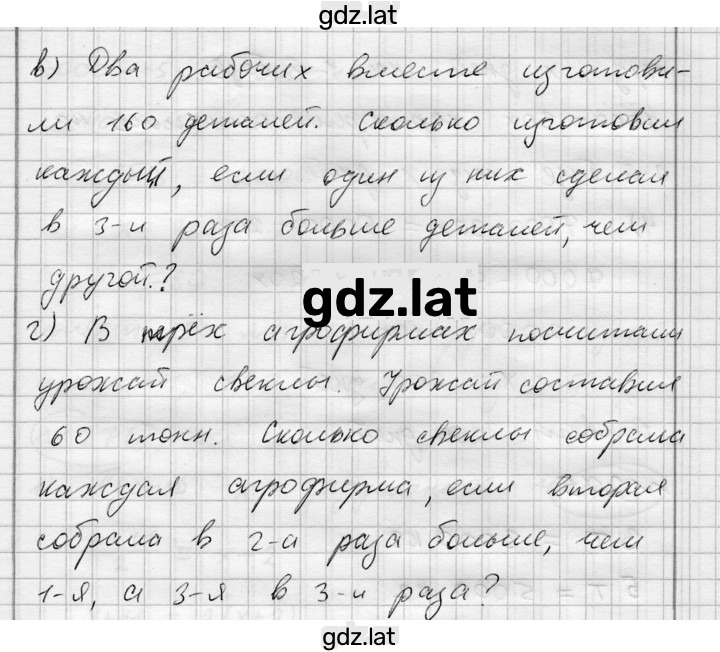 gdz.lat
в) Два рабочих вместе изготови-
ли 160 деталей. Сколько изготовил
каждый, если один из них сделал
в 3-и раза больше деталей, чем
другой.?
gdz.lat
г) В трёх агрофирмах посчитали
урожай свеклы. Урожай составил
60 тонн. Сколько свеклы собрала
каждая агрофирма, если вторая
собрала в 2-а раза больше, чем
1-я, а 3-я в 3-и раза?
gdz.lat